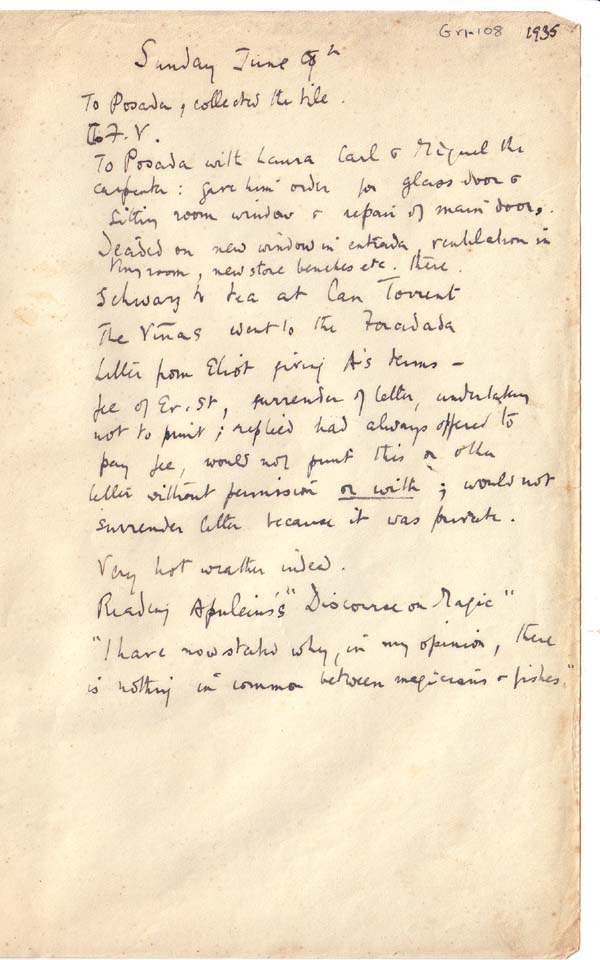 Gri-108 1935
Sunday June 9th
To Posada, collected the tile.
To F.V.
To Posada with Laura Carl & Miguel the
carpenter: gave him order for glass door &
sitting room window & repair of main door.
Decided on new window in entrada, ventilation in
room, new stone benches etc. there.
Schwarz to tea at Can Torrent
The Viñas went to the Foradada
Letter from Eliot giving A's terms –
fee of , surrender of letter, undertaking
not to print; replied had always offered to
pay fee, would not print this or other
letter without permission or with; would not
surrender letter because it was private.
Very hot weather indeed.
Reading Apuleius's "Discourse on Magic"
"I have now stated why, in my opinion, there
is nothing in common between magicians & fishes."